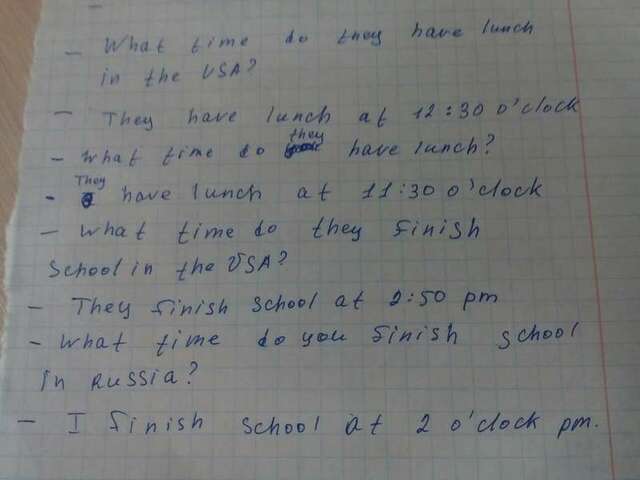 - What time do they have lunch
in the USA?
- They have lunch at 12:30 o'clock
- What time do they have lunch?
- They have lunch at 11:30 o'clock
- What time do they finish
School in the USA?
- They finish school at 2:50 pm
- What time do you finish school
in Russia?
- I finish school at 2 o'clock pm.